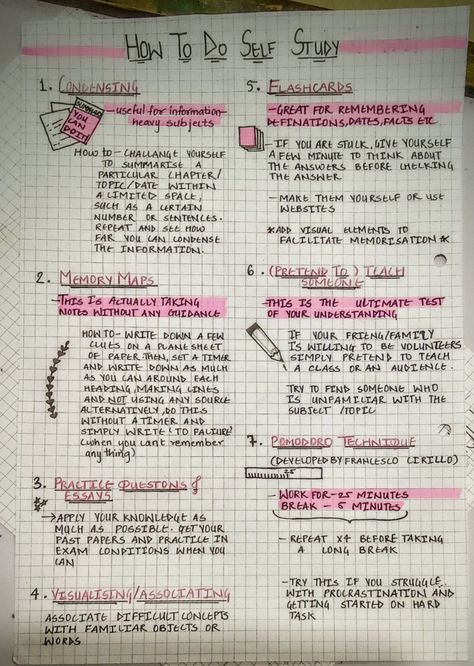 HOW TO DO SELF STUDY
1. CONDENSING
SUMMARY
YOU
CAN
DO IT!
- useful for information-
heavy subjects
HOW TO - CHALLANGE YOURSELF
TO SUMMARISE A
PARTICULAR CHAPTER/
TOPIC/DATE WITHIN
A LIMITED SPACE,
SUCH AS A CERTAIN
NUMBER OR SENTENCES.
REPEAT AND SEE HOW
FAR YOU CAN CONDENSE
THE INFORMATION.
2. MEMORY MAPS
- THIS IS ACTUALLY TAKING
NOTES WITHOUT ANY GUIDANCE
HOW TO - WRITE DOWN A FEW
CLUES ON A PLANE SHEET
OF PAPER. THEN, SET A TIMER
AND WRITE DOWN AS MUCH
AS YOU CAN AROUND EACH
HEADING, MAKING LINES
AND NOT USING ANY SOURCE
ALTERNATIVELY, DO THIS
WITHOUT A TIMER AND
SIMPLY WRITE 'TO FAILURE'
(when you cant remember
any thing)
3. PRACTICE QUESTONS &
ESSAYS
→ APPLY YOUR KNOWLEDGE AS
MUCH AS POSSIBLE. GET YOUR
PAST PAPERS AND PRACTICE IN
EXAM CONDITIONS WHEN YOU
CAN
4. VISUALISING/ASSOCIATING
ASSOCIATE DIFFICULT CONCEPTS
WITH FAMILIAR OBJECTS OR
WORDS
5. FLASHCARDS
- GREAT FOR REMEMBERING
DEFINATIONS, DATES, FACTS ETC
- IF YOU ARE STUCK, GIVE YOURSELF
A FEW MINUTE TO THINK ABOUT
THE ANSWERS BEFORE CHECKING
THE ANSWER
- MAKE THEM YOURSELF OR USE
WEBSITES
*ADD VISUAL ELEMENTS TO
FACILITATE MEMORISATION *
6. (PRETEND TO) TEACH
SOMEONE
- THIS IS THE ULTIMATE TEST
OF YOUR UNDERSTANDING
IF YOUR FRIENG/FAMILY
IS WILLING TO BE VOLUNTEERS
SIMPLY PRETEND TO TEACH
A CLASS OR AN AUDIENCE.
TRY TO FIND SOMEONE WHO
IS UNFAMILIAR WITH THE
SUBJECT /TOPIC
7. POMODORO TECHNIQUE
(DEVELOPED BY FRANCESCO CIRILLO)
25
- WORK FOR - 25 MINUTES
BREAK - 5 MINUTES
- REPEAT x4 BEFORE TAKING
A LONG BREAK
- TRY THIS IF YOU STRUGGLE
WITH PROCRASTINATION AND
GETTING STARTED ON HARD
TASK